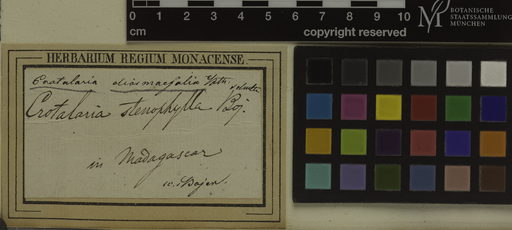 0 1 2 3 4 5 6 7 8 9 10
cm
copyright reserved
M
BOTANISCHE
STAATSSAMMLUNG
MÜNCHEN
HERBARIUM REGIUM MONACENSE
Crotalaria
Crotalaria stenophylla Boj.
in Madagascar
Bojer.